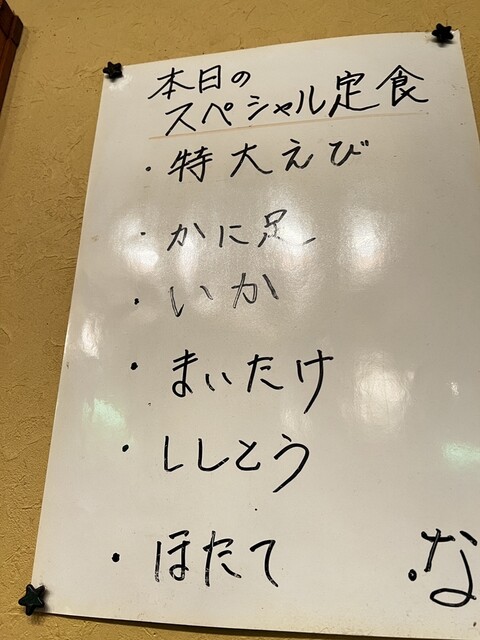 本日の
スペシャル定食
・特大えび
・かに足
・いか
・まいたけ
・ししとう
・ほたて
・な